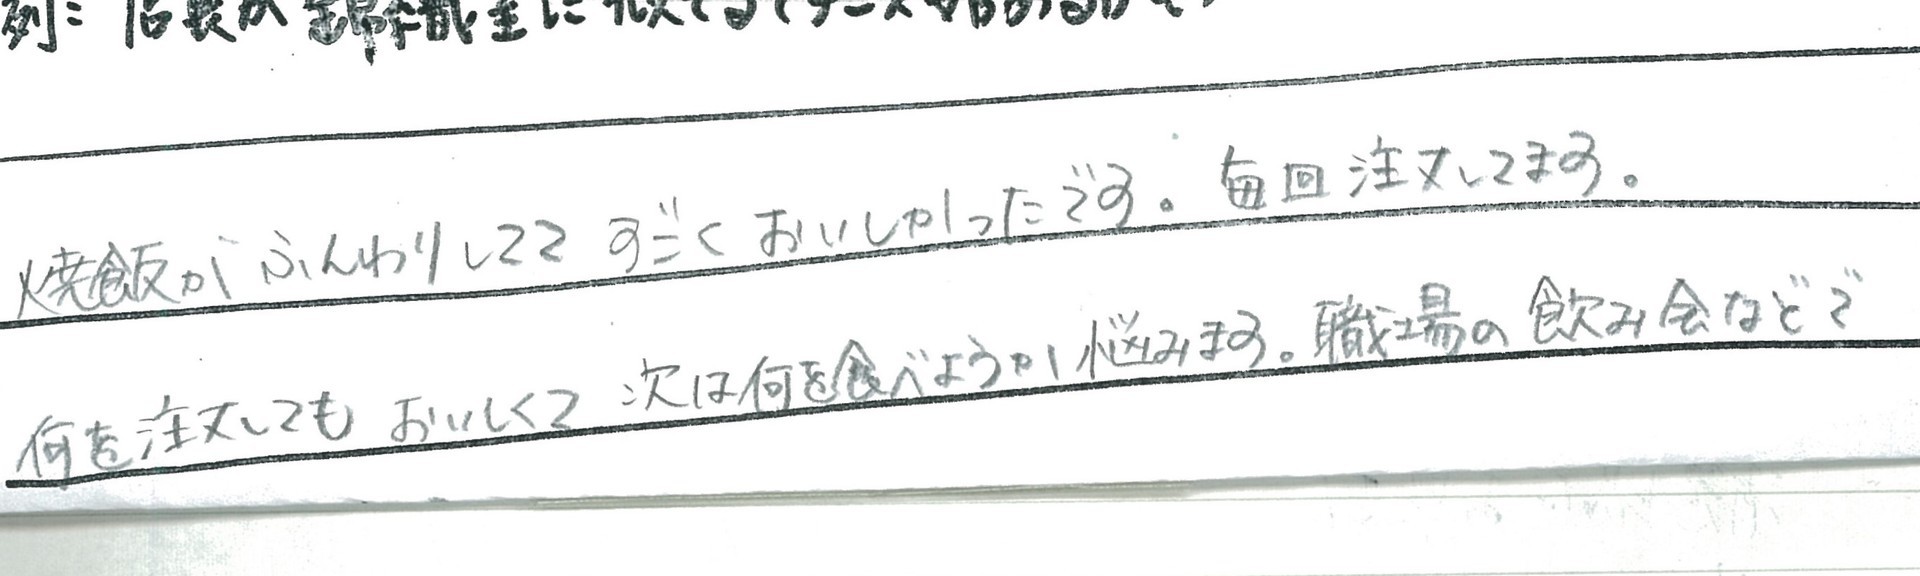 例：店長が錦織圭に
焼飯がふんわりしてて すごく おいしかったです。毎回 注文してます。
何を注文しても おいしくて 次は何を食べようか悩みます。職場の 飲み会などで